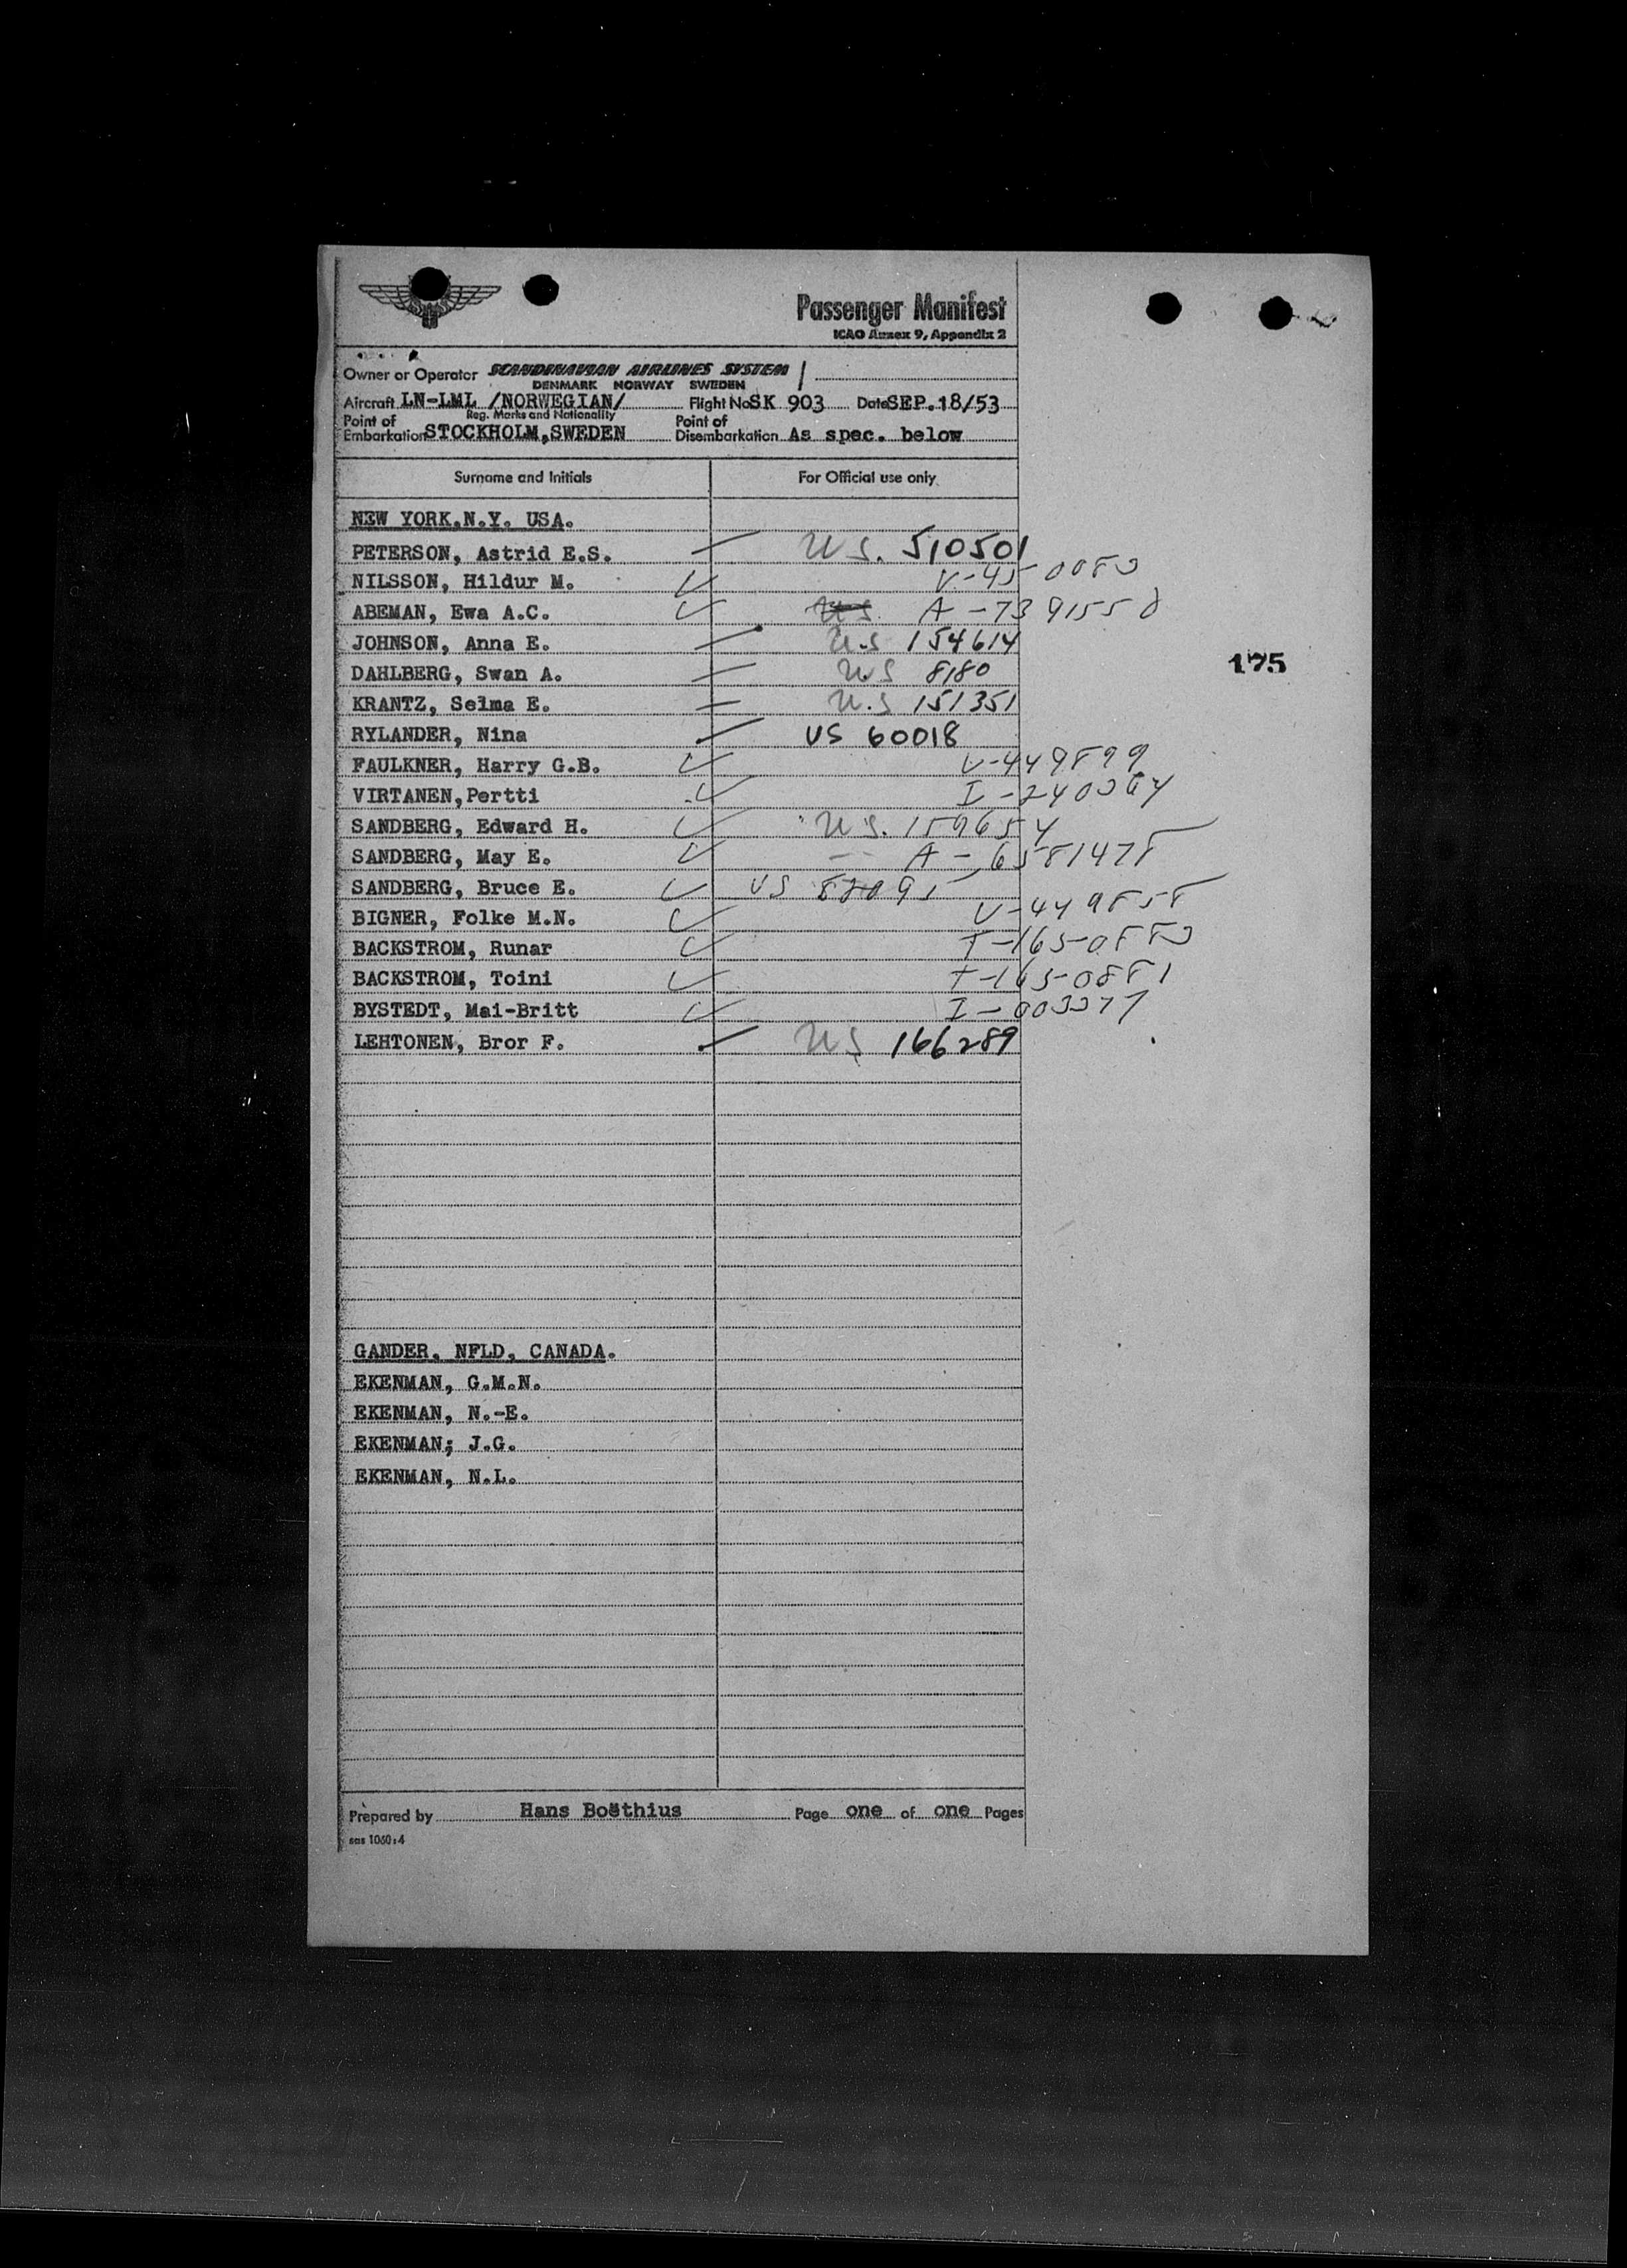 Passenger Manifest
ICAO Annex 9, Appendix 2
Owner or Operator SCANDINAVIAN AIRLINES SYSTEM
DENMARK NORWAY SWEDEN
Aircraft LN-LML /NORWEGIAN/ Flight No SK 903 Date SEP.18/53
Reg. Marks and Nationality
Point of Embarkation STOCKHOLM, SWEDEN Point of Disembarkation As spec. below
Surname and Initials For Official use only
NEW YORK.N.Y. USA.
PETERSON, Astrid E.S. U.S. 510501
NILSSON, Hildur M.
ABEMAN, Ewa A.C. US A-7391558
JOHNSON, Anna E. U.S 154614
175
DAHLBERG, Swan A. US 8180
KRANTZ, Selma E. U.S 151351
RYLANDER, Nina US 60018
FAULKNER, Harry G.B. V-449899
VIRTANEN,Pertti
SANDBERG, Edward H. U.S. 159654
SANDBERG, May E. A-6581478
SANDBERG, Bruce E. US 82095
BIGNER, Folke M.N. V-449858
BACKSTROM, Runar
BACKSTROM, Toini
BYSTEDT, Mai-Britt
LEHTONEN, Bror F. US 166289
GANDER, NFLD, CANADA.
EKENMAN, G.M.N.
EKENMAN, N.-E.
EKENMAN; J.G.
EKENMAN, N.L.
Prepared by Hans Boëthius Page one of one Pages
sas 1060:4